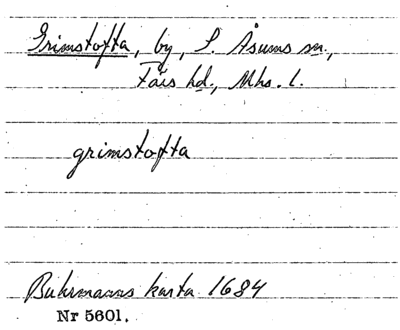 Grimstofta, by, S. Åsums sn.,
Färs hd., Mhs. l.
grimstofta
Buhrmanns karta 1684
Nr 5601.